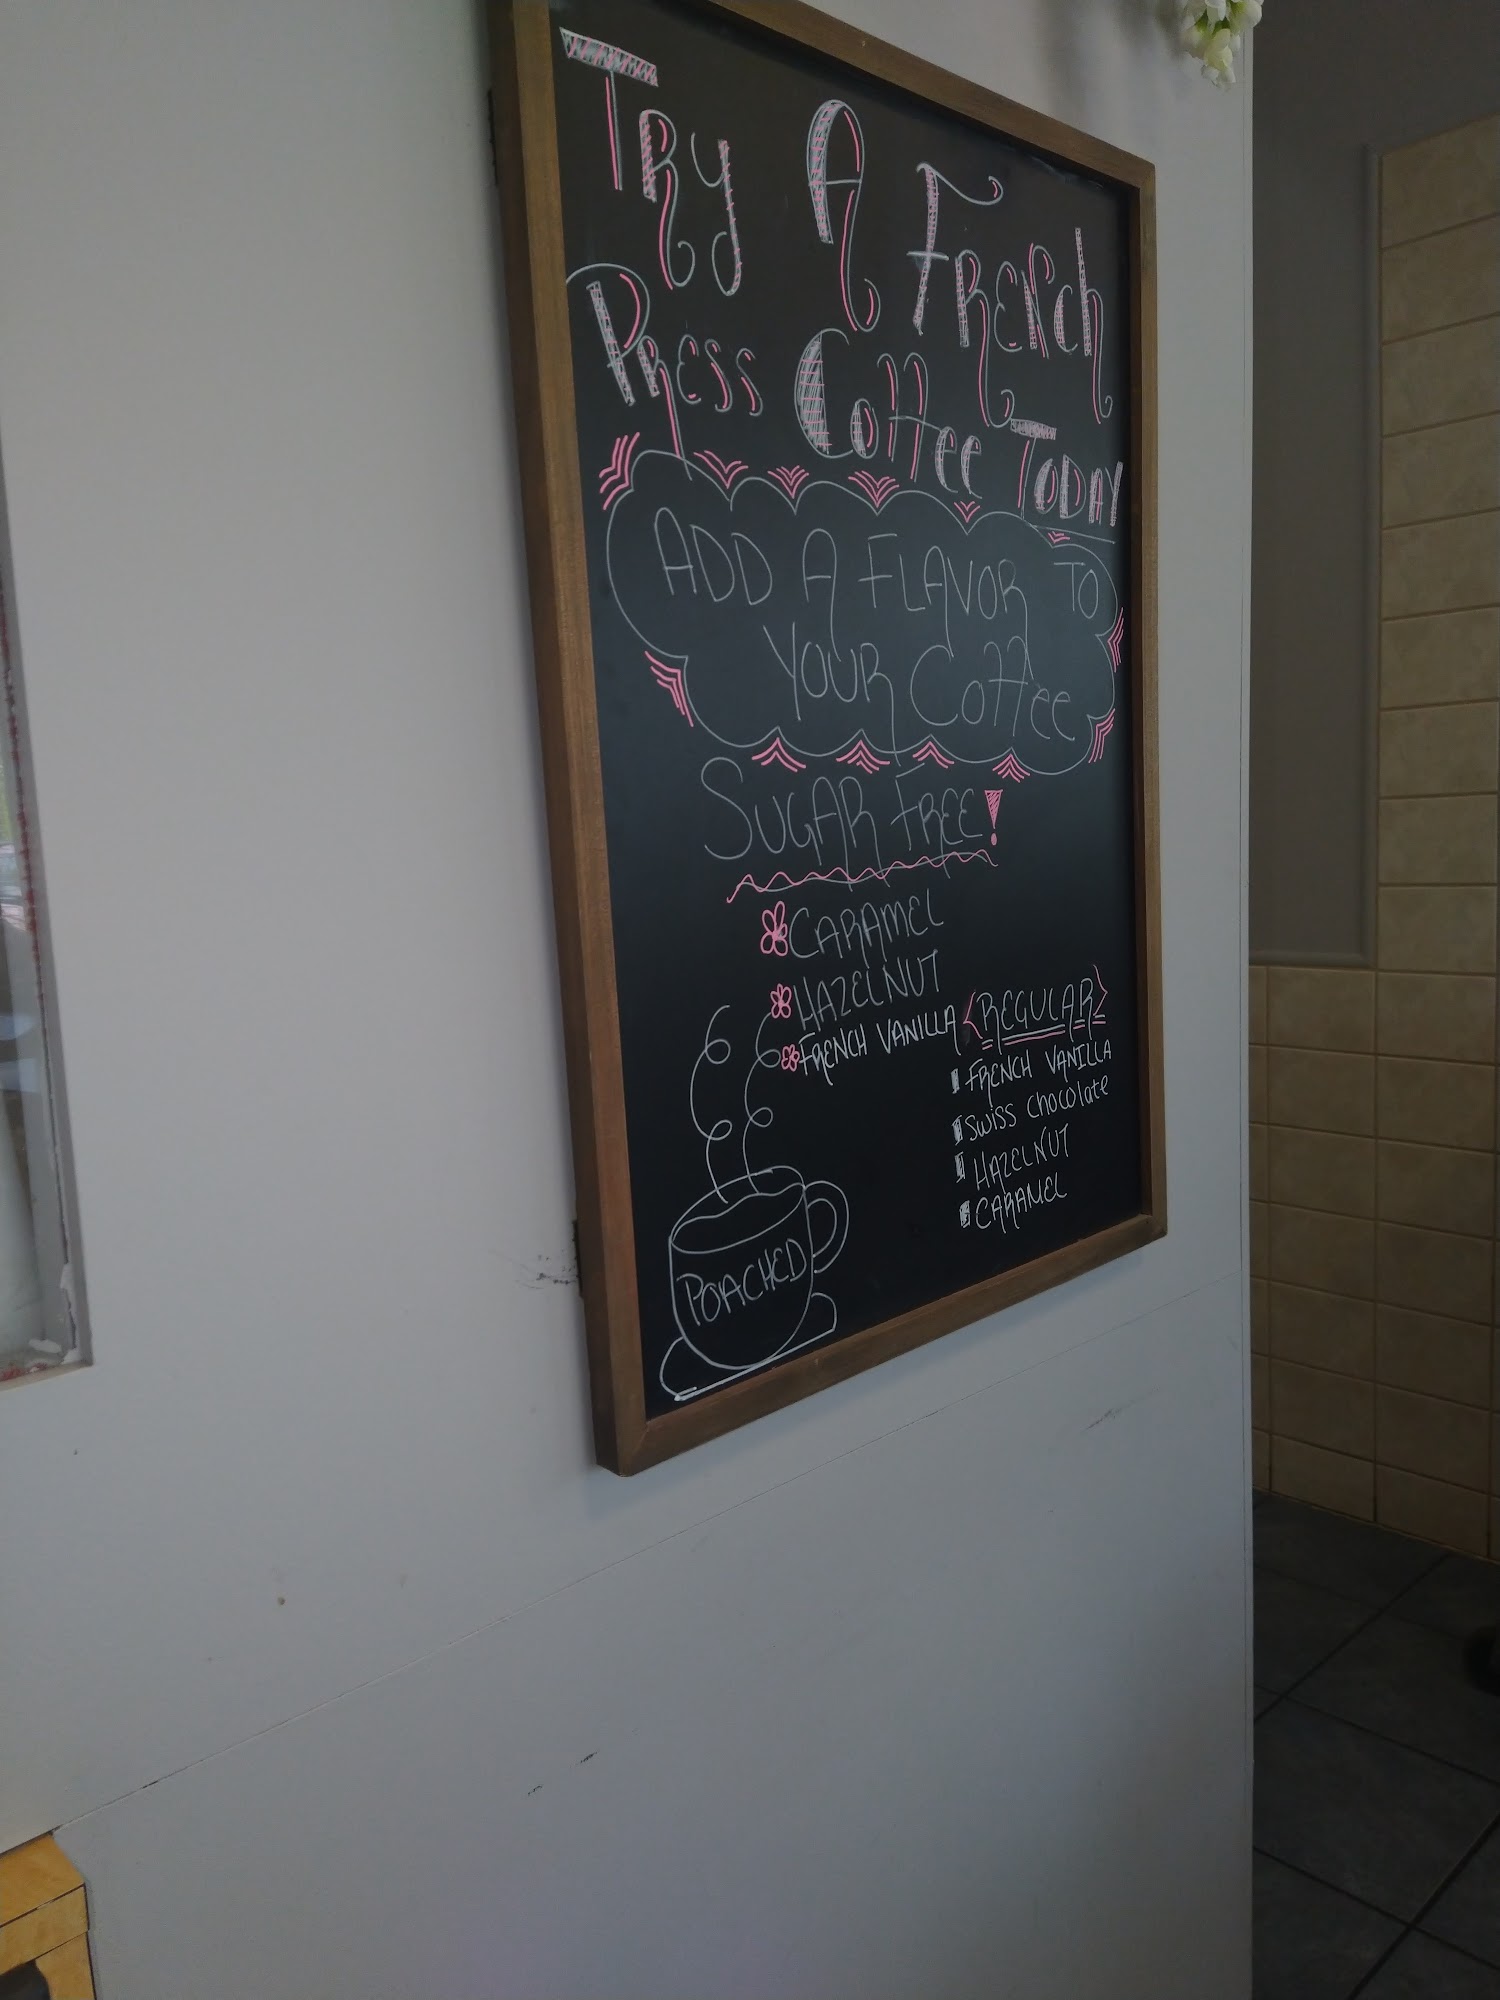 Try A French
Press Coffee Today
ADD A FLAVOR TO
YOUR Coffee
SUGAR FREE!
CARAMEL
HAZELNUT
FRENCH VANILLA
<REGULAR>
FRENCH VANILLA
Swiss Chocolate
HAZELNUT
CARAMEL
POACHED